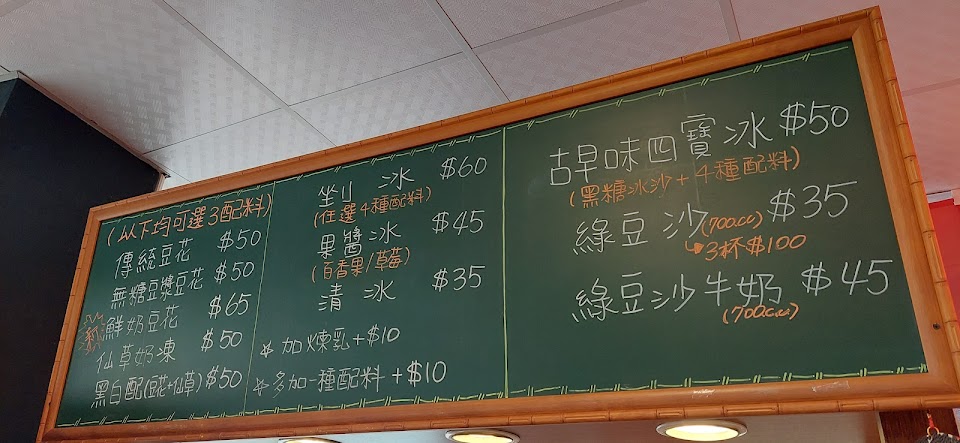 (以下均可選3配料)
傳統豆花 $50
無糖豆漿豆花 $50
鮮奶豆花 $65
仙草奶凍 $50
黑白配(豆花+仙草) $50
剉冰 $60
(任選4種配料)
果醬冰 $45
(百香果/草莓)
清冰 $35
☆加煉乳+$10
☆多加一種配料+$10
古早味四寶冰 $50
(黑糖冰沙+4種配料)
綠豆沙(700cc) $35
3杯$100
綠豆沙牛奶 $45
(700c.c.)